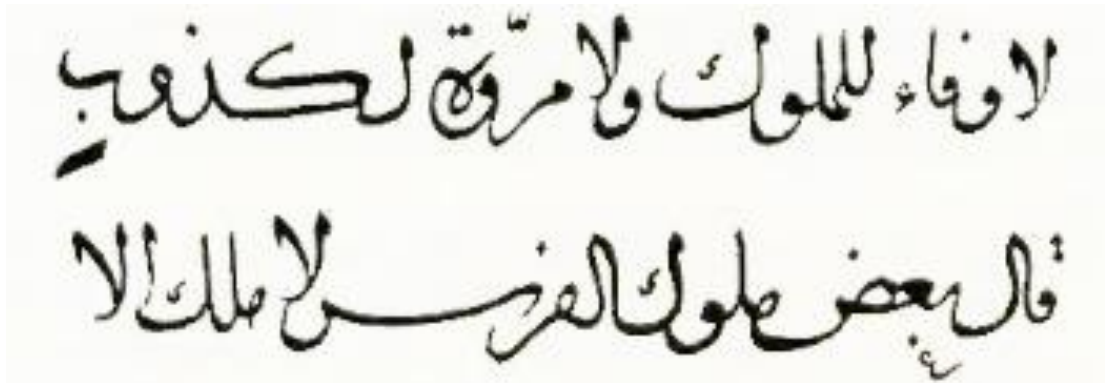 لا وفاء للملوك ولا مروّة لكذوب
قال بعض ملوك الفرس لا ملك الا